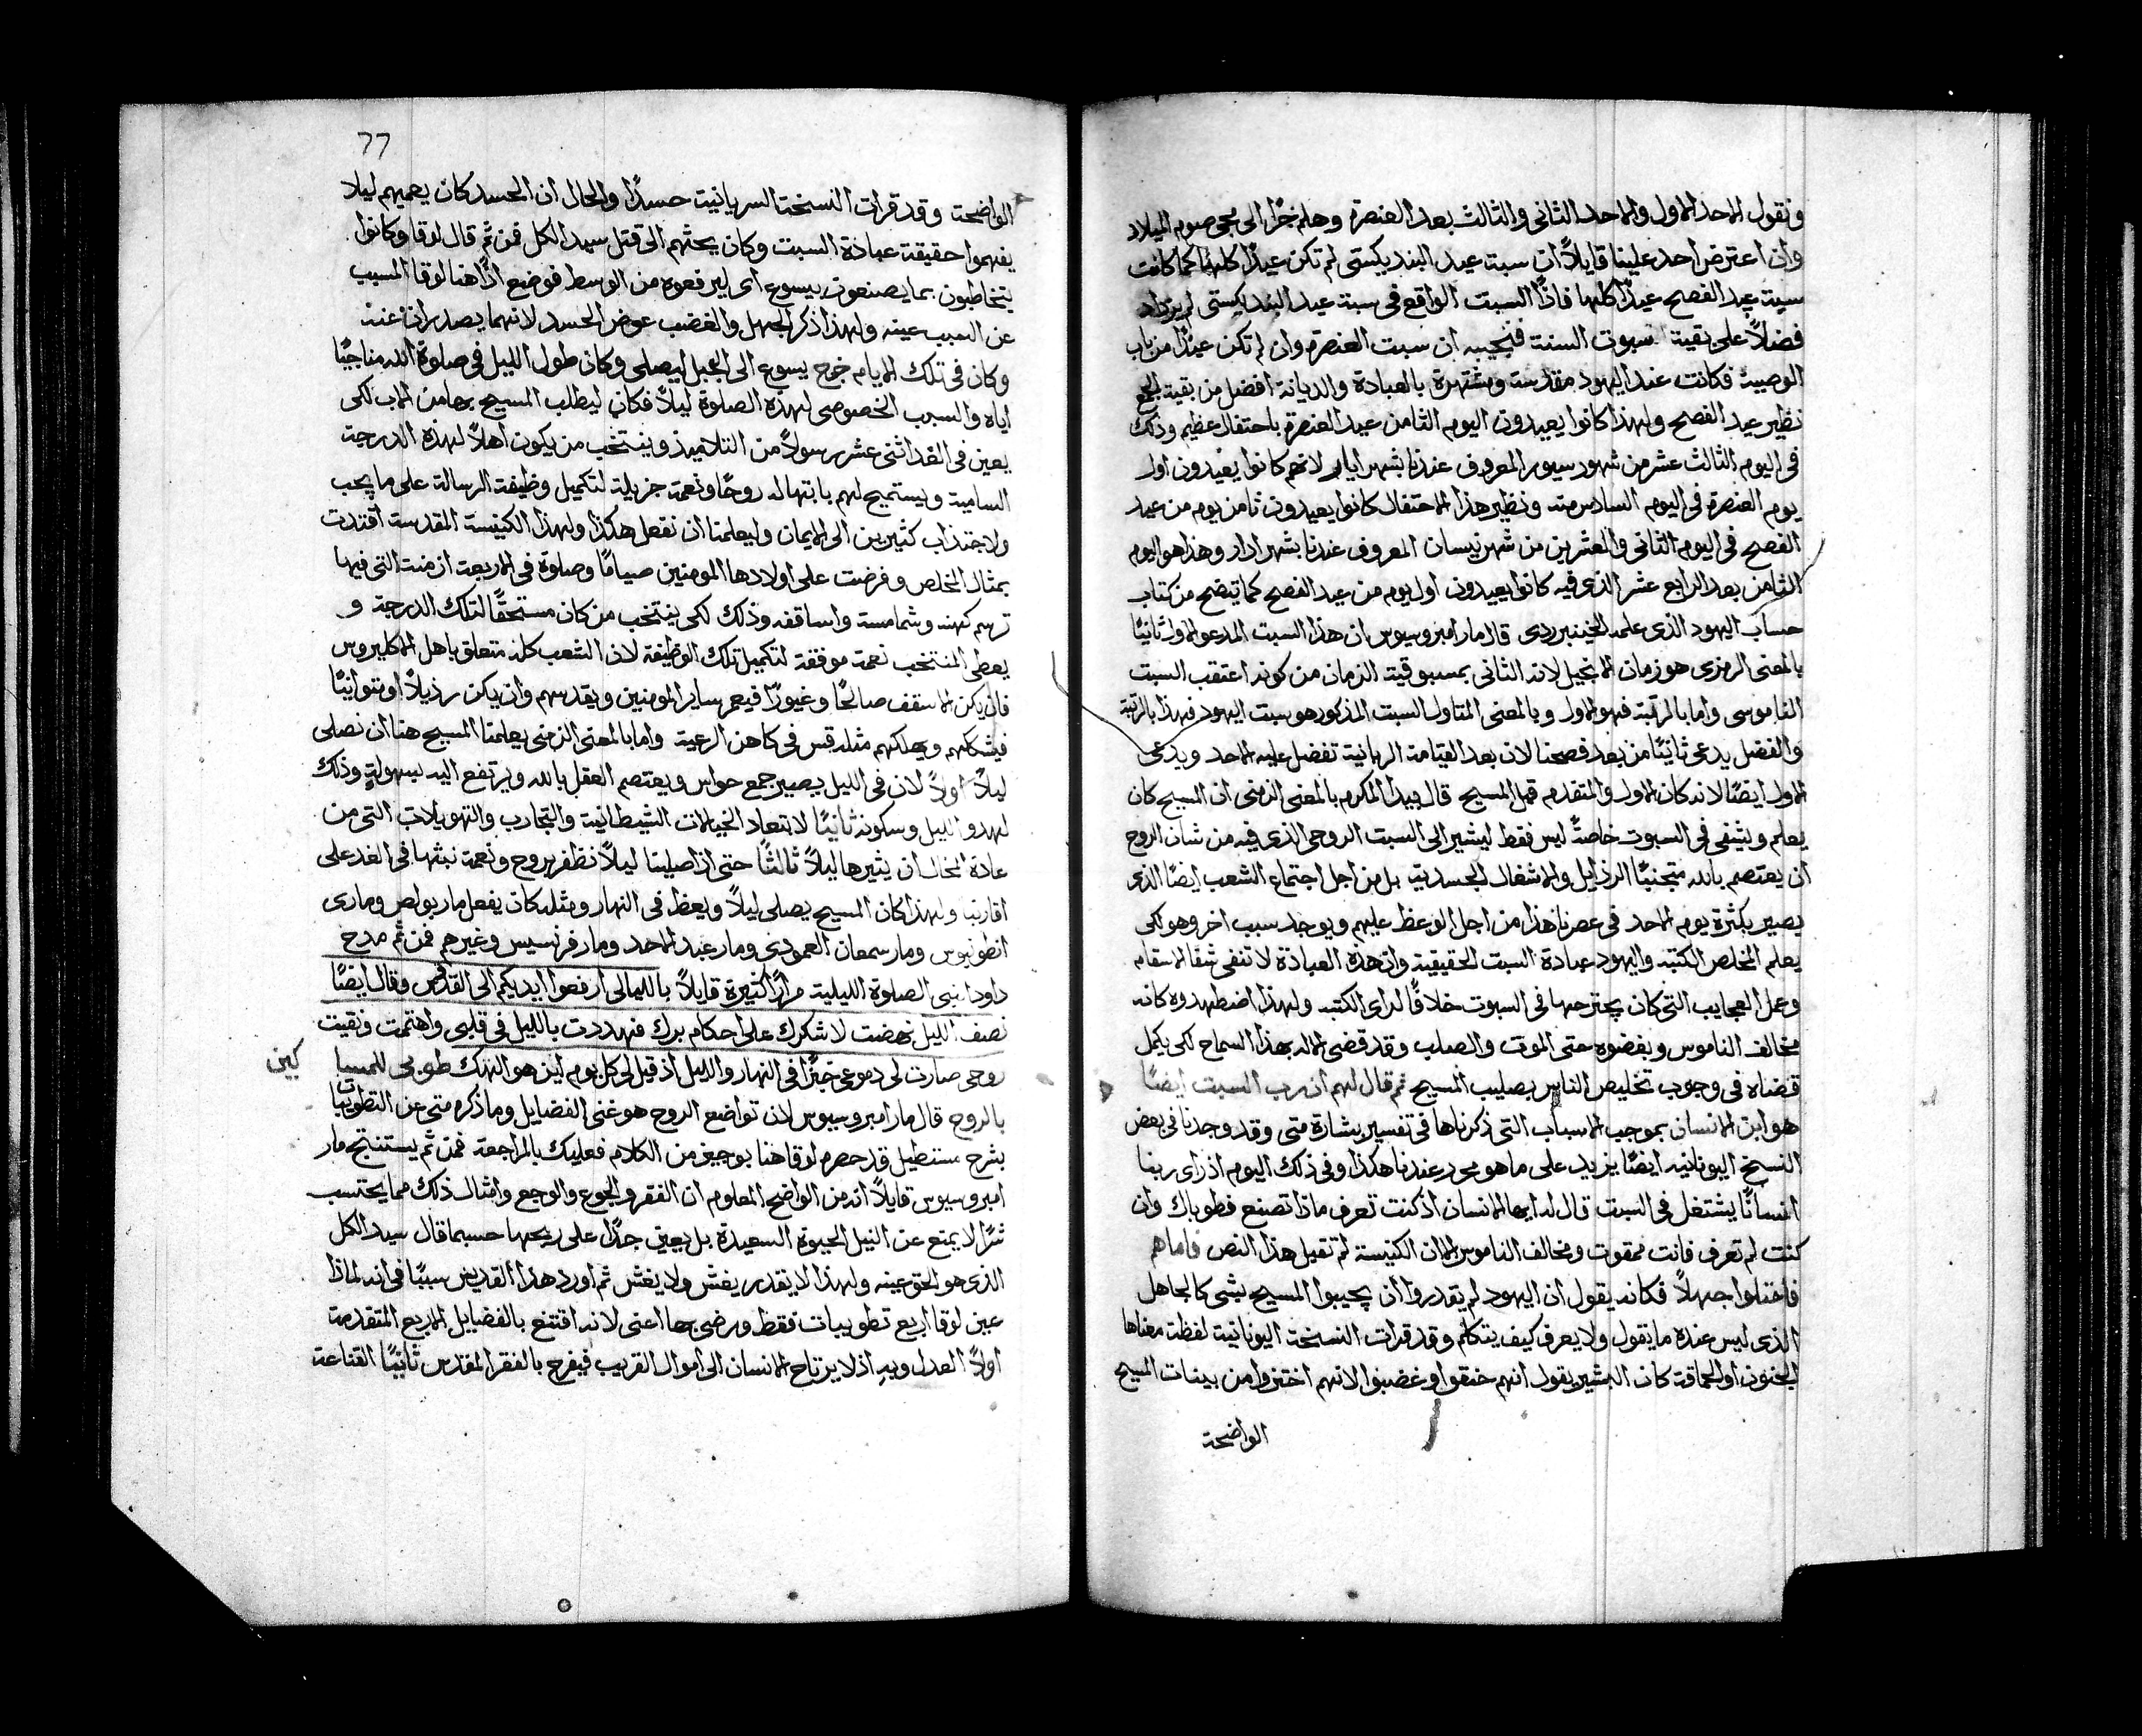 ونقول الاحد الاول والاحد الثاني والثالث بعد العنصرة وهلم جرًا الى مجي صوم الميلاد
وان اعترض احد علينا قايلاً ان سبت عيد البنديكستي لم تكن عيدًا كلها كما كانت
سبت عيد الفصح عيدًا كلها فاذًا السبت الواقع في سبت عيد البنديكستي لم يزداد
فضلاً على بقية سبوت السنة فنجيبه ان سبت العنصرة وان لم تكن عيدًا من باب
الوصية فكانت عند اليهود مقدسة ومشتهرة بالعبادة والديانة افضل من بقية الجمع
نظير عيد الفصح ولهذا كانوا يعيدون اليوم الثامن عيد العنصرة باحتفال عظيم وذلك
في اليوم الثالث عشر من شهور سيور المعروف عندنا بشهر ايار لانهم كانوا يعيدون اول
يوم العنصرة في اليوم السادس منه ونظير هذا الاحتفال كانوا يعيدون ثامن يوم من عيد
الفصح في اليوم الثاني والعشرين من شهر نيسان المعروف عندنا بشهر ادار وهذا هو اليوم
الثامن بعد الرابع عشر الذي فيه كانوا يعيدون اول يوم من عيد الفصح كما يتضح من كتاب
حساب اليهود الذي علمه قال مار امبروسيوس ان هذا السبت المدعو الاول ثانيًا
بالمعنى الرمزي هو زمان الانجيل لانه الثاني بمسبوقية الزمان من كونه اعتقب السبت
الناموسي واما بالمرتبة فهو الاول وبالمعنى المتاول السبت المذكور هو سبت اليهود فهذا بالرتبة
والفضل يدعى ثانيًا من بعد فصحنا لان بعد القيامة الربانية تفضل عليه الاحد ويدعى
الاول ايضًا لانه كان الاول والمتقدم قبل المسيح قال بيدا المكرم بالمعنى الرمزي ان المسيح كان
يعلم ويشفي في السبوت خاصةً ليس فقط ليشير الى السبت الروحي الذي فيه من شان الروح
ان يعتصم بالله متجنبًا الرذايل والاشغال الجسدية بل من اجل اجتماع الشعب ايضًا الذي
يصير بكثرة يوم الاحد في عصرنا هذا من اجل الوعظ عليهم ويوجد سبب اخر وهو لكي
يعلم المخلص الكتبه واليهود عبادة السبت الحقيقية وان هذه العبادة لا تنفي شفا الاسقام
وعمل العجايب التي كان يجترحها في السبوت خلافًا لراي الكتبه ولهذا اضطهدوه كانه
مخالف الناموس وبغضوه حتى الموت والصلب وقد قضى الاله بهذا السماح لكي يكمل
قضاه في وجوب تخليص الناس بصليب المسيح ثم قال لهم ان رب السبت ايضًا
هو ابن الانسان بموجب الاسباب التي ذكرناها في تفسير بشارة متى وقد وجدنا في بعض
النسخ اليونانيه ايضًا يزيد على ما هو محرر عندنا هكذا وفي ذلك اليوم اذ راى ربنا
انسانًا يشتغل في السبت قال له ايها الانسان اذ كنت تعرف ماذا تصنع فطوباك وان
كنت لم تعرف فانت ممقوت ومخالف الناموس الا ان الكنيسة لم تقبل هذا النص فاما هم
فامتلوا جهلاً فكانه يقول ان اليهود لم يقدروا ان يجيبوا المسيح بشي كالجاهل
الذي ليس عنده ما يقول ولا يعرف كيف يتكلم وقد قرات النسخة اليونانية لفظة معناها
الجنون او الحماقة كان البشير يقول انهم خنقوا وغضبوا لانهم اختزوا من بينات المسيح
الواضحة
77
الواضحة وقد قرات النسخة السريانية حسدًا والحال ان الحسد كان يعميهم ليلا
يفهموا حقيقة عبادة السبت وكان يحثهم الى قتل سيد الكل فمن ثم قال لوقا وكانوا
يتخاطبون بما يصنعون بيسوع اي ليرفعوه من الوسط فوضع اذًا هنا لوقا المسبب
عن السبب عينه ولهذا ذكر الجهل والغضب عوض الحسد لانهما يصدران عنه
وكان في تلك الايام خرج يسوع الى الجبل ليصلي وكان طول الليل في صلوة الله مناجيًا
اياه والسبب الخصوصي لهذه الصلوة ليلاً فكان ليطلب المسيح بها من الاب لكي
يعين في الغد اثنى عشر رسولاً من التلاميذ وينتخب من يكون اهلاً لهذه الدرجة
السامية ويستميح لهم بابتهاله روحًا ونعمة جزيلة لتكميل وظيفة الرسالة على ما يجب
ولاجتذاب كثيرين الى الايمان وليعلمنا ان نفعل هكذا ولهذا الكنيسة المقدسة اقتدت
بمثال المخلص وفرضت على اولادها المومنين صيامًا وصلوة في الاربعة ازمنة التي فيها
ترسم كهنه وشمامسة واساقفه وذلك لكي ينتخب من كان مستحقًا لتلك الدرجة و
يعطي المنتخب نعمة موفقة لتكميل تلك الوظيفة لان الشعب كله متعلق باهل الاكليروس
فان يكن الاسقف صالحًا وغيورًا فيعمر ساير المومنين ويقدسهم وان يكن رذيلاً او متوانيًا
فيشككهم ويهلكهم مثله قس في كاهن الرعية واما بالمعنى الرمزي يعلمنا المسيح هنا ان نصلي
ليلاً اولاً لان في الليل يصير جمع حواس ويعتصم العقل بالله ويرتفع اليه بسهولةٍ وذلك
لهدو الليل وسكونه ثانيًا لابتعاد الخيالات الشيطانية والتجارب والتهويلات التي من
عادة المحال ان يثيرها ليلاً ثالثًا حتى اذا صلينا ليلاً نظفر بروح ونعمة نبثها في الغد على
اقاربنا ولهذا كان المسيح يصلي ليلاً ويعظ في النهار ومثله كان يفعل مار بولص وماري
انطونيوس ومار سمعان العمودي ومار عبد الاحد ومار فرنسيس وغيرهم فمن ثم مدح
داود النبي الصلوة الليلية مرارًا كثيرة قايلاً بالليالي ارفعوا ايديكم الى القدس وقال ايضًا
نصف الليل نهضت لاشكرك على احكام برك فهددت بالليل في قلبي واهتمت ونقيت
روحي صارت لي دموعي خبزًا في النهار والليل اذ قيل لي كل يوم اين هو الهك طوبى للمسا
كين
بالروح قال مار امبروسيوس لان تواضع الروح هو غنى الفضايل وما ذكره متى عن التطويبات
بشرح مستطيل قد حصره لوقا هنا بوجيز من الكلام فعليك بالمراجعة فمن ثم يستنتج مار
امبروسيوس قايلاً انه من الواضح المعلوم ان الفقر والجوع والوجع وامثال ذلك مما يحتسب
شرًا لا يمنع عن النيل الحيوة السعيدة بل يعين جدًا على ربحها حسبما قال سيد الكل
الذي هو الحق عينه ولهذا لا يقدر يغش ولا يغش ثم اورد هذا القديس سببًا في انه لماذا
عين لوقا اربع تطويبات فقط ورضي بها اعني لانه اقتنع بالفضايل الاربع المتقدمة
اولاً العدل وبهِ اذ لا يرتاح الانسان الى اموال القريب فيفرح بالفقر المقدس ثانيًا القناعة